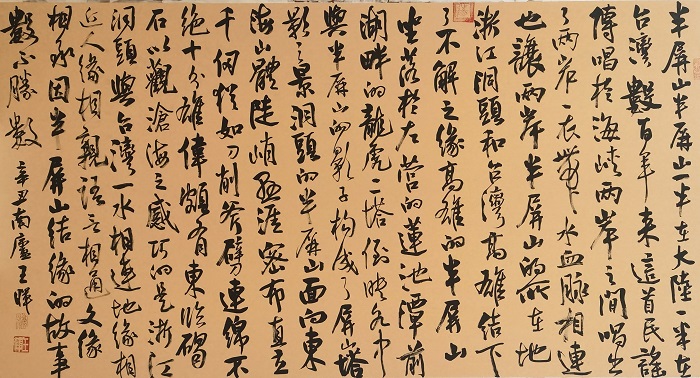 半屏山半屏山一半在大陸一半在
台灣數百年來這首民謠
傳唱於海峽兩岸之間唱出
了兩岸一衣帶水血脈相連
也讓兩岸半屏山的所在地
浙江洞頭和台灣高雄結下
了不解之緣高雄的半屏山
坐落於左營的蓮池潭前
湖畔的龍虎二塔倒映水中
與半屏山的影子構成了屏山塔
影之景洞頭的半屏山面向東
海山體陡峭密布直立
千仞猶如刀削斧劈連綿不
絕十分雄偉頗有東臨碣
石以觀滄海之感巧的是浙江
洞頭與台灣一水相連地緣相
近人緣相親語言相通文緣
相承因半屏山結緣的故事
數不勝數
辛丑南廬王暉